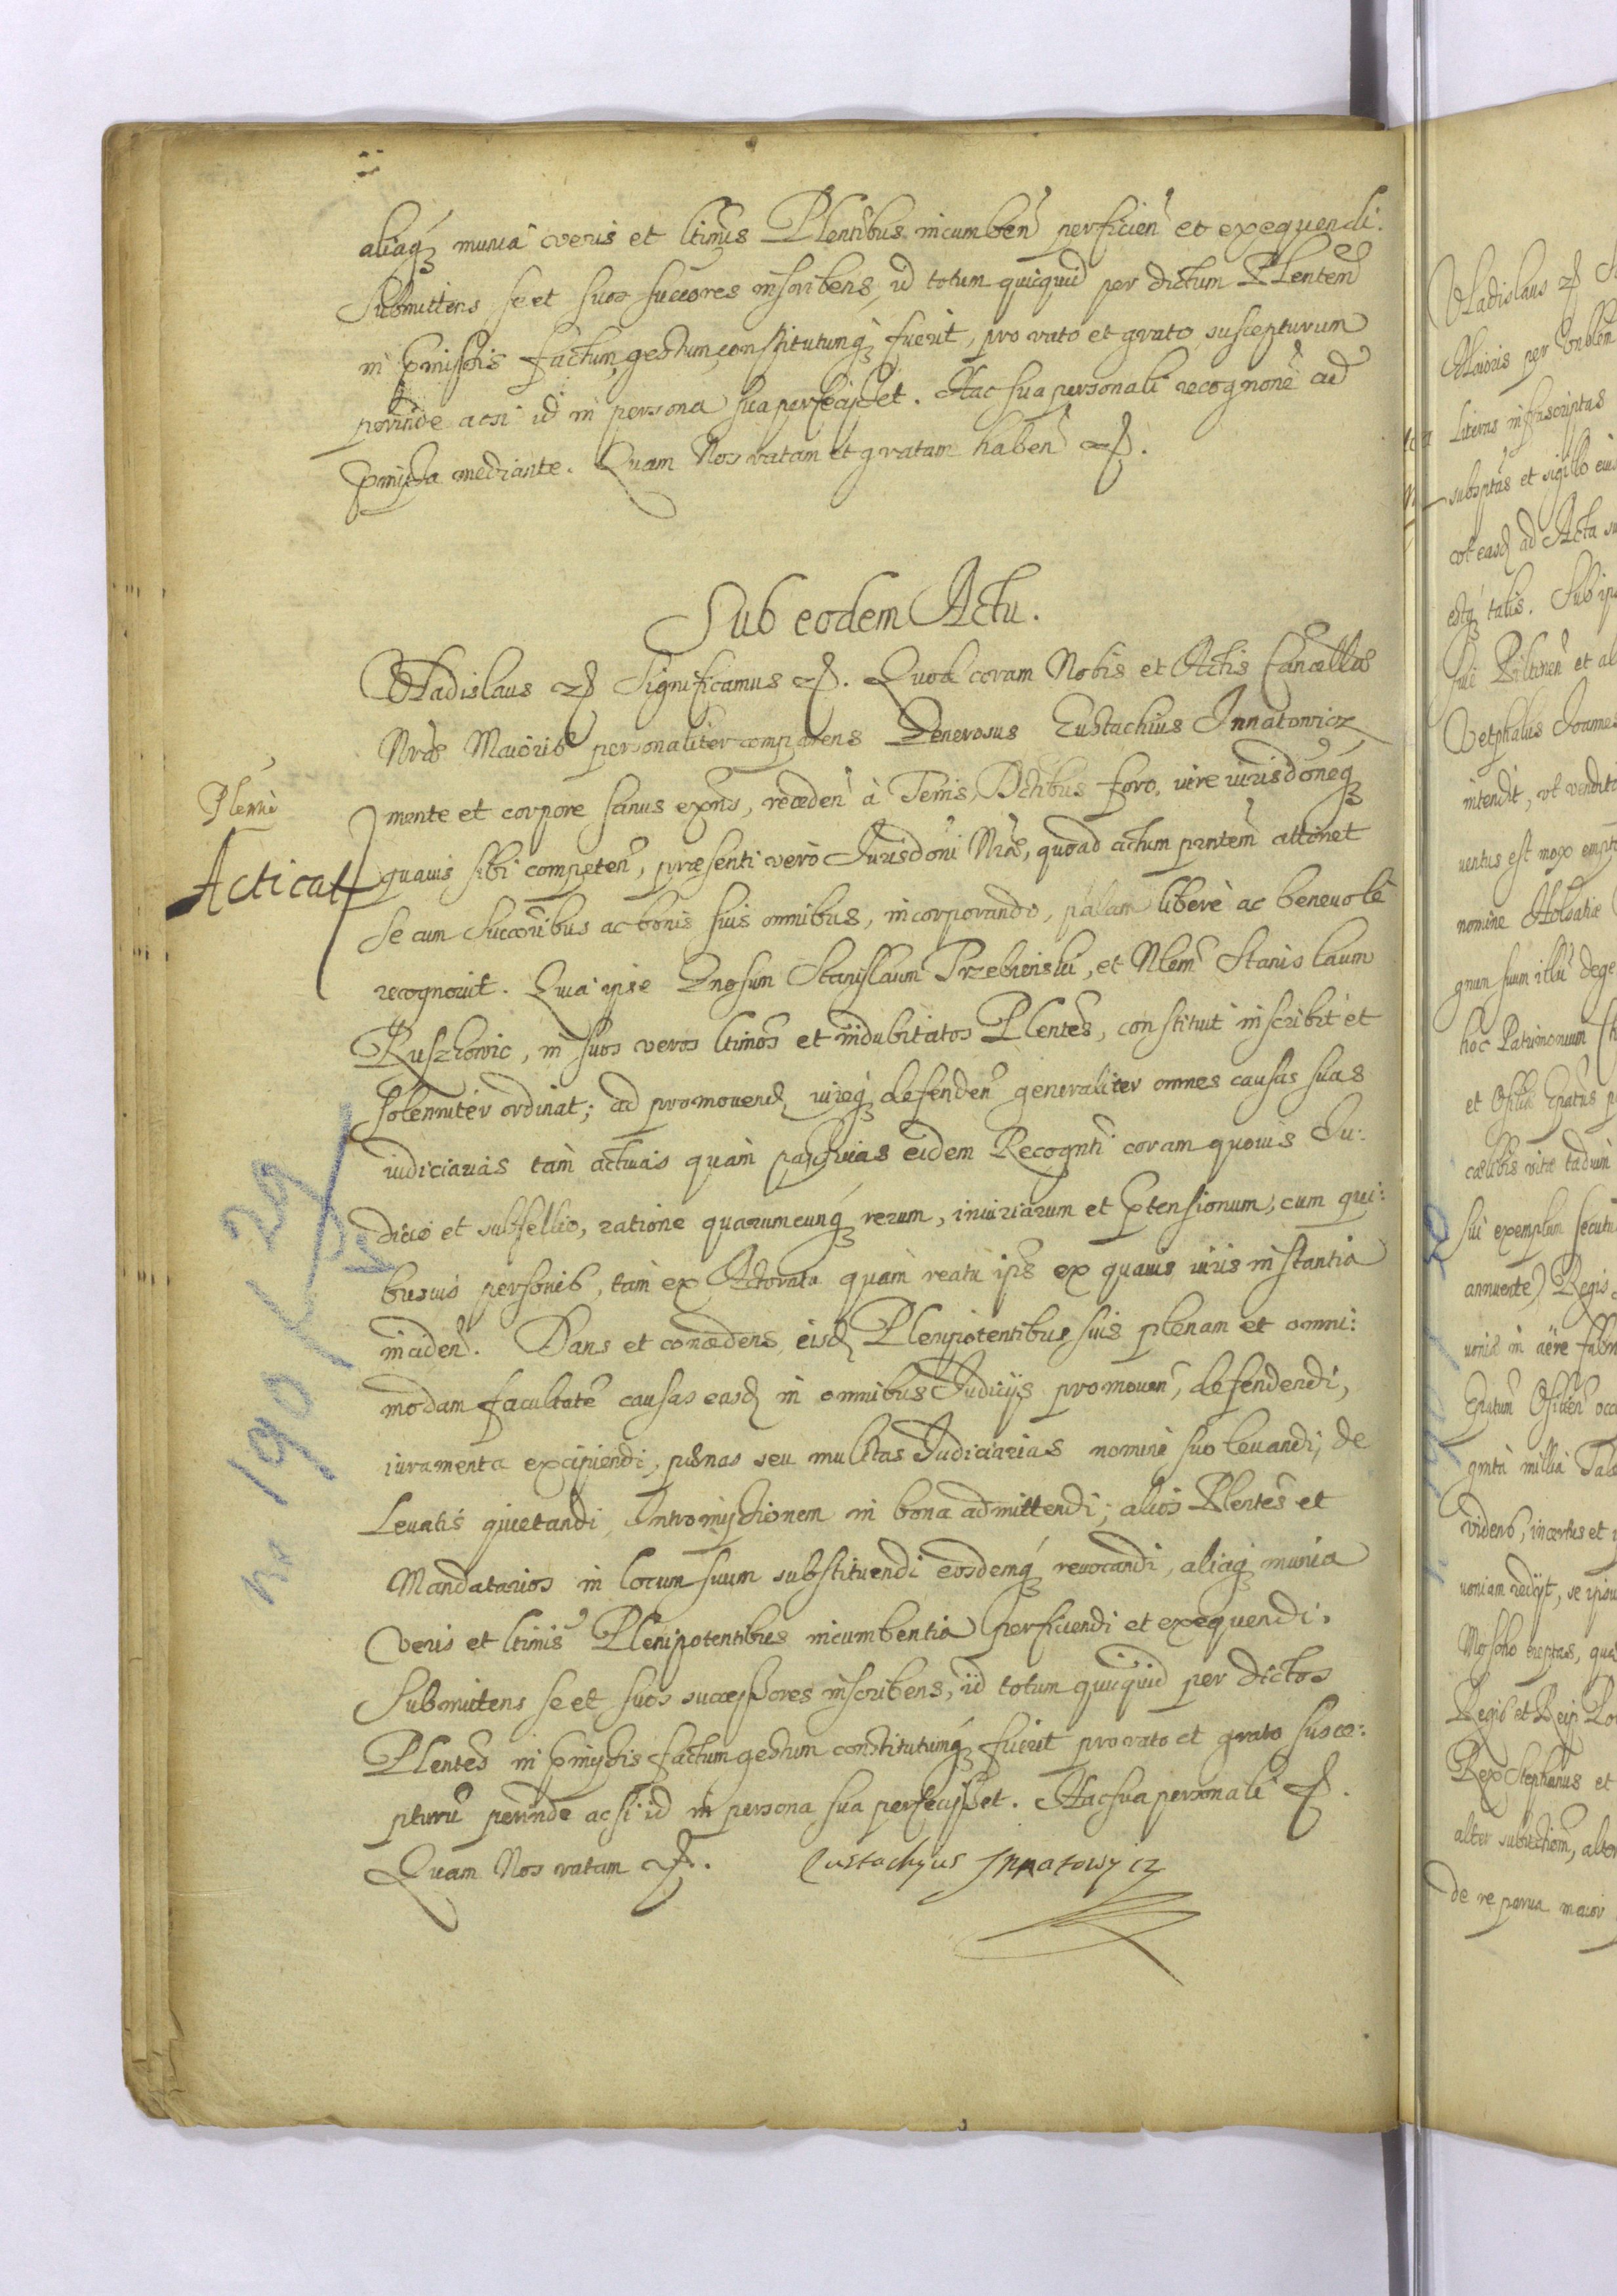 aliaq́ꝫ munia veris et ltimis Plentibus incumben̄ perficien̄ et exequendi.
Submittens se et suos succōres inscribens, id totum quicquid per dictum Plentem
in p̄missis factum, gestum, constitutumq́ꝫ fuerit, pro rato et grato suscepturum
perinde acsi id in persona sua perfecisset. Hac sua personali recognone ad
p̄missa mediante. Quam Nos ratam et gratam haben̄ etc.
Sub eodem Actu.
Vladislaus etc Significamus etc. Quod coram Nobis et Actis Cancellae
Nrae Maioris personaliter comparens Generosus Eustachius Innatowicz
Plenria
mente et corpore sanus exns, receden̄ à Terris, Dctibus foro, iure iurisdoneq́ꝫ
Acticat
quauis sibi competen̄, praesenti verò Jurisdoni Nrae, quoad actum pntem attinet
se cum succoribus ac bonis suis omnibus, incorporando, palam liberè ac beneuolè
recognouit. Quia ipse Gnosum Stanislaum Trzebienski, et Nlem Stanislaum
Ruszkowic, in suos veros ltimos et indubitatos Plentes, constituit inscribit et
solenniter ordinat; ad promouend iureq́ꝫ defenden̄ generaliter omnes causas suas
iudiciarias tam actiuas quàm passiuas eidem Recognti coram quouis Ju:
dicio et subsellio, ratione quarumcunq́ꝫ rerum, iniuriarum et p̄tensionum, cum qui:
busuis personis, tam ex Actoratu quàm reatu ips ex quauis iuris instantia
inciden̄. Dans et concedens eisd Plenipotentibus suis plenam et omni:
modam facultatē causas easd in omnibus Judicijs promouen̄, defendendi,
iuramenta excipiendi, paenas seu mulctas Judiciarias nomine suo leuandi, de
Leuatis quietandi Intromissionem in bona admittendi; alios Plentes et
Mandatarios in locum suum substituendi eosdemq́ꝫ reuocandi, aliaq́ꝫ munia
veris et ltimis Plenipotentibus incumbentia perficiendi et exequendi.
Submittens se et suos successores inscribens, id totum quicquid per dictos
Plentes in p̄missis factum gestum constitutumq́ꝫ fuerit pro rato et grato susce:
pturū perinde acsi id in persona sua perfecisset. Hac sua personali etc.
Quam Nos ratam etc. Eustachyus Innatowycz
Nr 190 k 29
Vladislaus etc
Maioris per
Literas infrascriptas
subsptas et sigillo eius
vt easd ad Acta
estq́ꝫ talis. Sub
intendit, vt
uentus est mox
nomine Holsatiae
gnum suum
hoc Patrimonium
caelibis vitae
sui exemplum secutus
annuente) Regis
videns, incertus et
uoniam redijt, se
Moscho ereptas, quas
Regis et Reip
Rex Stephanus et
alter
de re parua maior